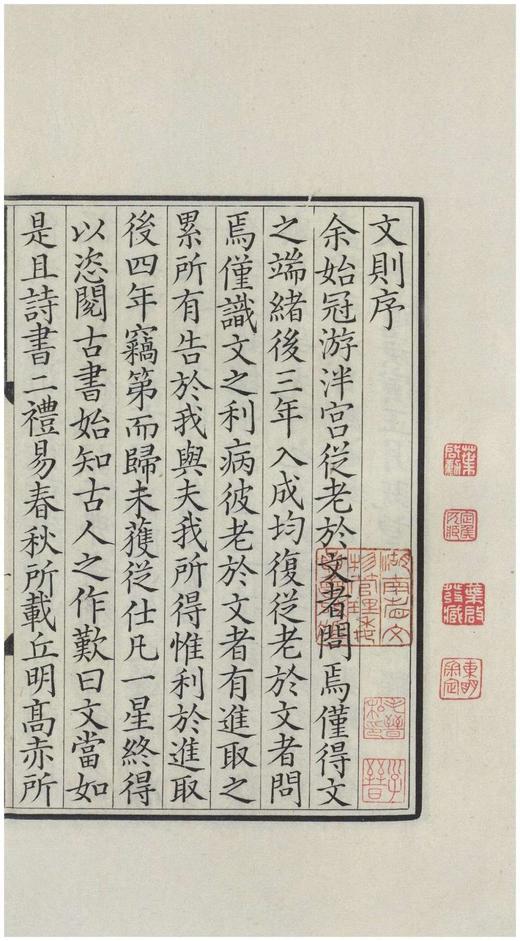 文則序
余始冠游泮宫從老於文者問焉僅得文
之端緒後三年入成均復從老於文者問
焉僅識文之利病彼老於文者有進取之
累所有告於我與夫我所得惟利於進取
後四年竊第而歸未獲從仕凡一星終得
以恣閱古書始知古人之作歎曰文當如
是且詩書二禮易春秋所載丘明髙赤所
葉啟勳
定矦所藏
葉啟發藏
東明審定